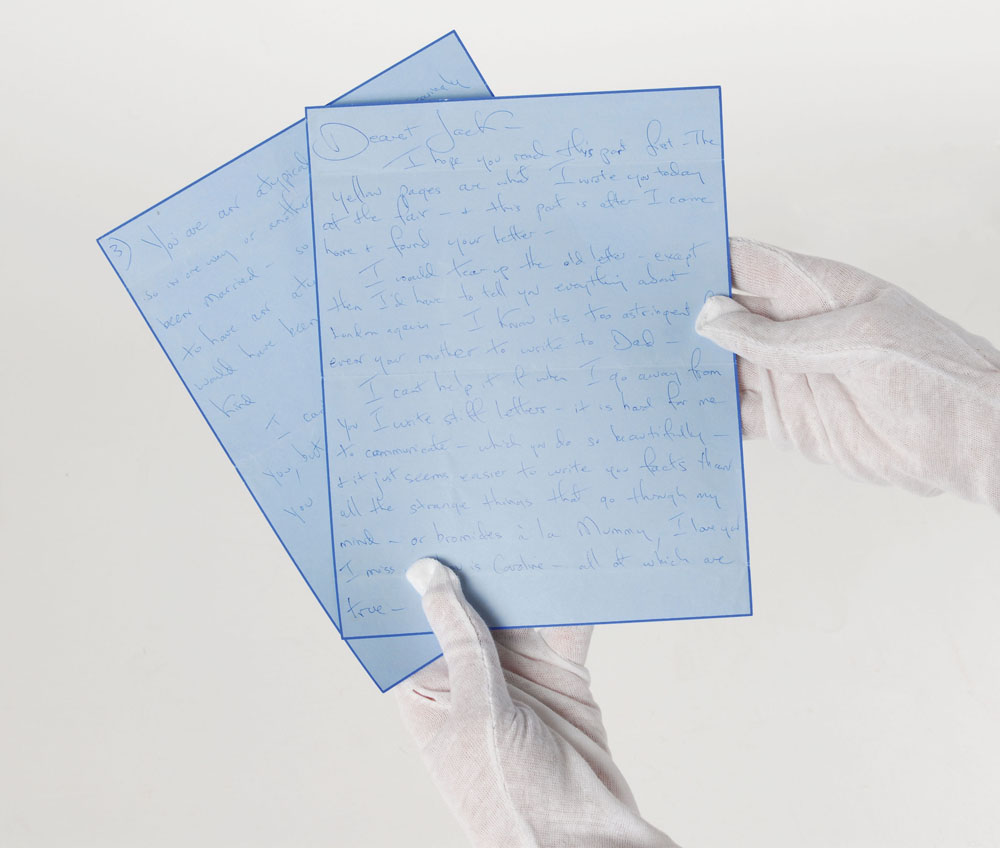 Dearest Jack —
I hope you read this part first — The
yellow pages are what I wrote you today
at the fair — + this part is after I came
home + found your letter —
I would tear up the old letter — except
then I'd have to tell you everything about
again — I know its too astringent
even your mother to write to Dad —
I cant help it if when I go away from
you I write stiff letters — it is hard for me
to communicate — which you do so beautifully —
+ it just seems easier to write you facts than
all the strange things that go through my
mind — or bromides à la Mummy, I love you
I miss is Caroline — all of which are
true —
3) You are an atypical
so in one way or another
been married — so
to have an aty
would have been
kind
I can
you, but
you